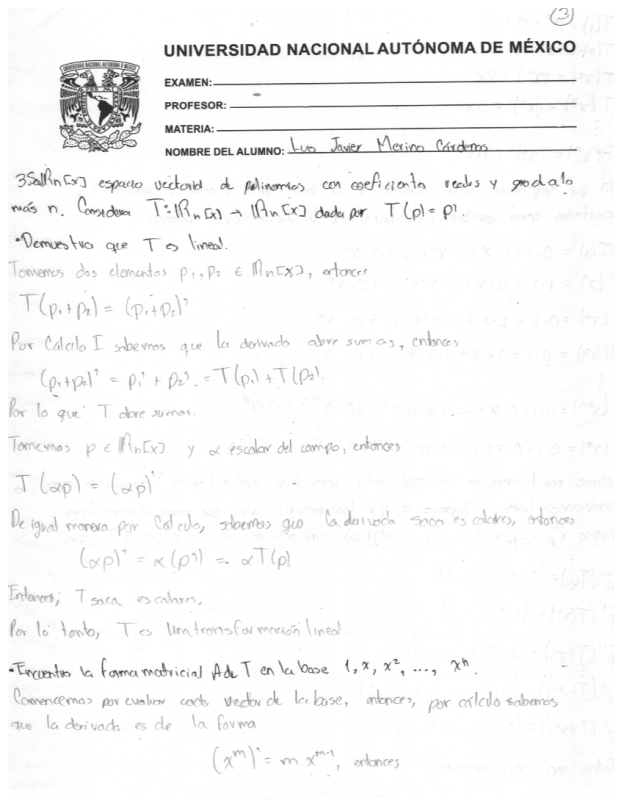 3
UNIVERSIDAD NACIONAL AUTÓNOMA DE MÉXICO
EXAMEN:
PROFESOR:
MATERIA:
NOMBRE DEL ALUMNO: Luis Javier Merino Cárdenas
3 Sea ℝn[x] espacio vectorial de polinomios con coeficientes reales y grado a lo
más n. Considera T: ℝn[x] → ℝn[x] dada por T(p) = p'
• Demuestra que T es lineal.
Tomemos dos elementos p₁, p₂ ∈ ℝn[x], entonces
T(p₁+p₂) = (p₁+p₂)'
Por Cálculo I sabemos que la derivada abre sumas, entonces
(p₁+p₂)' = p₁' + p₂' = T(p₁) + T(p₂).
Por lo que T abre sumas.
Tomemos p ∈ ℝn[x] y α escalar del campo, entonces
T(αp) = (αp)'
De igual manera por Cálculo, sabemos que la derivada saca escalares, entonces
(αp)' = α(p') = αT(p)
Entonces, T saca escalares.
Por lo tanto, T es Una transformación lineal.
• Encuentra la forma matricial A de T en la base 1, x, x², ..., xⁿ.
Comencemos por evaluar cada vector de la base, entonces, por cálculo sabemos
que la derivada es de la forma
(xᵐ)' = m xᵐ⁻¹, entonces